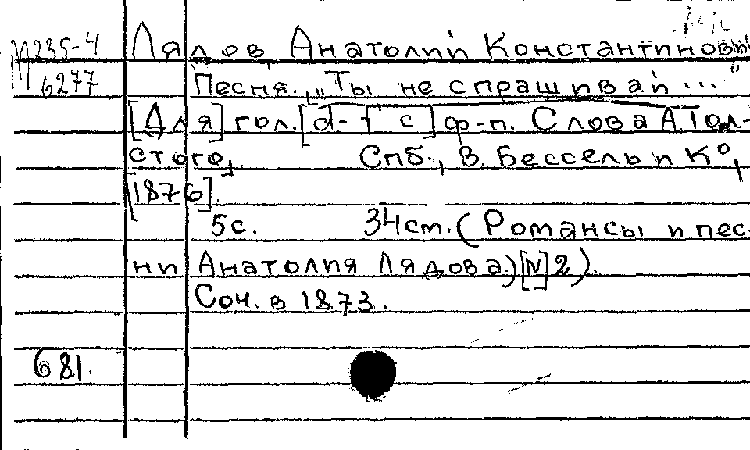 М235-4 Лядов, Анатолий Константинович
6277 Песня. „Ты не спрашивай..."
[Для] гол. [d-f с] ф-п. Слова А. Тол-
стого, Спб., В. Бессель и К°,
[1876].
5с. 34см. (Романсы и пес-
ни Анатолия Лядова.) [N 2).
Соч. в 1873.
681.